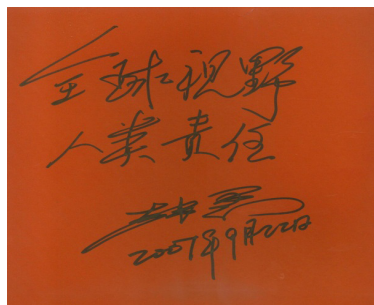 全球视野
人类责任
2007年9月22日